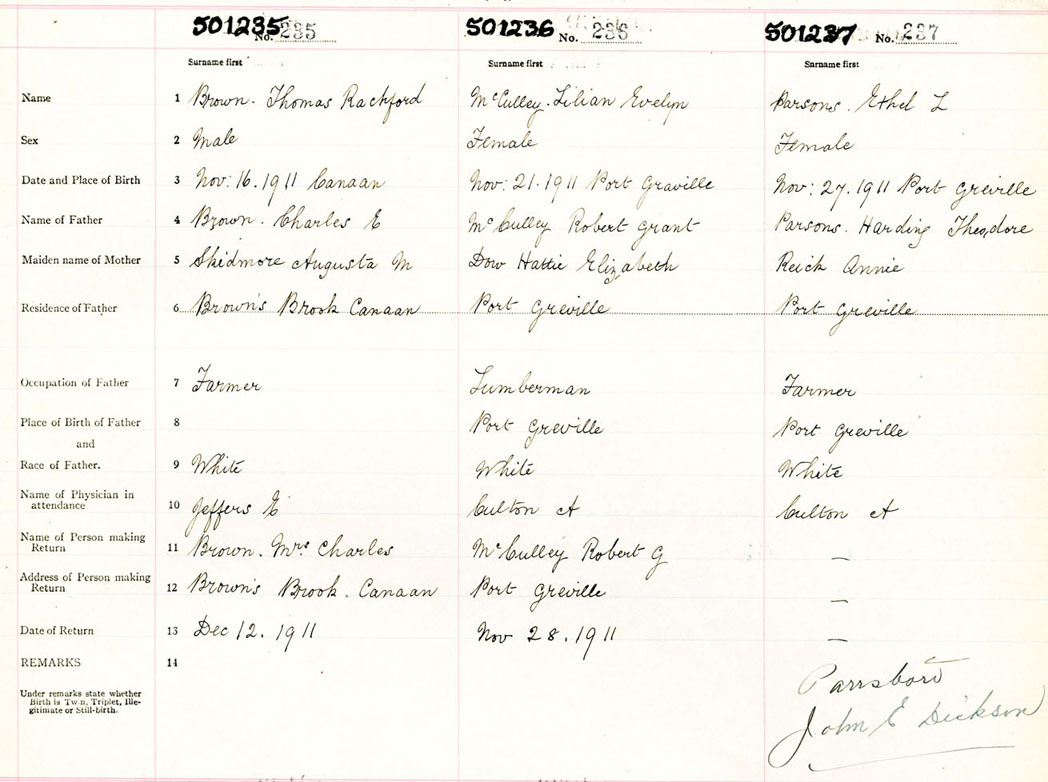 501235 No. 235 501236 No. 236 501237 No. 237
Surname first Surname first Surname first
Name 1 Brown. Thomas Rachford McCulley. Lilian Evelyn Parsons. Ethel L
Sex 2 Male Female Female
Date and Place of Birth 3 Nov: 16. 1911 Canaan Nov: 21. 1911 Port Graville Nov: 27. 1911 Port Greville
Name of Father 4 Brown. Charles E McCulley Robert Grant Parsons. Harding Theodore
Maiden name of Mother 5 Skidmore Augusta M Dow Hattie Elizabeth Reick Annie
Residence of Father 6 Brown's Brook Canaan Port Greville Port Greville
Occupation of Father 7 Farmer Lumberman Farmer
Place of Birth of Father 8 Port Greville Port Greville
and
Race of Father. 9 White White White
Name of Physician in
attendance 10 Jeffers E Culton A Culton A
Name of Person making
Return 11 Brown. Mrs Charles McCulley Robert G —
Address of Person making
Return 12 Brown's Brook. Canaan Port Greville —
Date of Return 13 Dec 12. 1911 Nov 28. 1911 —
REMARKS 14
Under remarks state whether
Birth is Twin, Triplet, Ille-
gitimate or Still-birth.
Parrsboro
John E Dickson